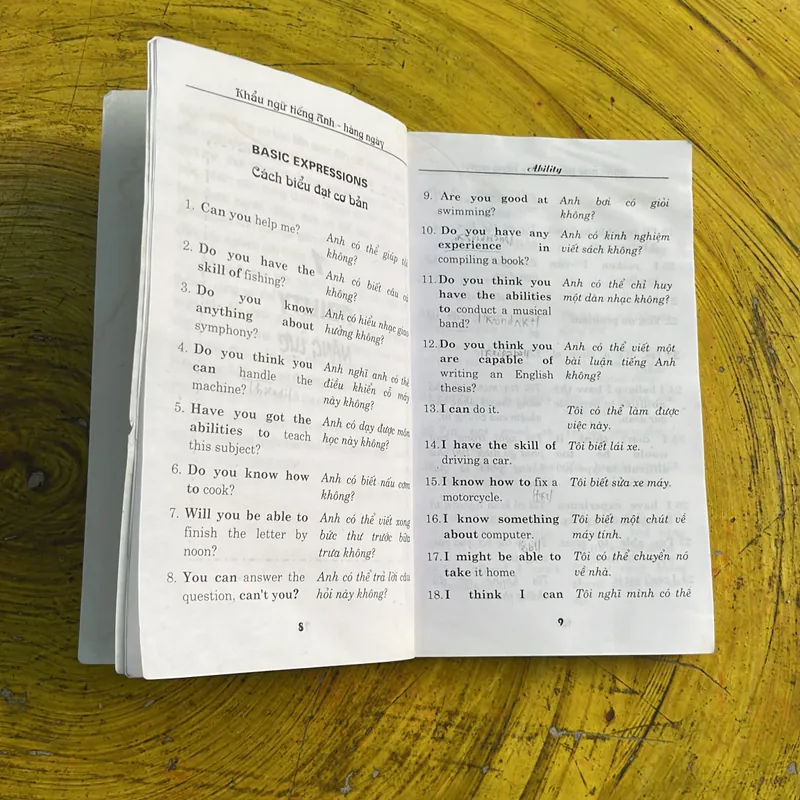 Khẩu ngữ tiếng Anh - hàng ngày
BASIC EXPRESSIONS
Cách biểu đạt cơ bản
1. Can you help me?
Anh có thể giúp tôi
không?
2. Do you have the
skill of fishing?
Anh có biết câu cá
không?
3. Do you know
anything about
symphony?
Anh có hiểu nhạc giao
hưởng không?
4. Do you think you
can handle the
machine?
Anh nghĩ anh có thể
điều khiển cỗ máy
này không?
5. Have you got the
abilities to teach
this subject?
Anh có dạy được môn
học này không?
6. Do you know how
to cook?
Anh có biết nấu cơm
không?
7. Will you be able to
finish the letter by
noon?
Anh có thể viết xong
bức thư trước bữa
trưa không?
8. You can answer the
question, can't you?
Anh có thể trả lời câu
hỏi này không?
8
Ability
9. Are you good at
swimming?
Anh bơi có giỏi
không?
10. Do you have any
experience in
compiling a book?
Anh có kinh nghiệm
viết sách không?
11. Do you think you
have the abilities
to conduct a musical
band?
Anh có thể chỉ huy
một dàn nhạc không?
12. Do you think you
are capable of
writing an English
thesis?
Anh có thể viết một
bài luận tiếng Anh
không?
13. I can do it.
Tôi có thể làm được
việc này.
14. I have the skill of
driving a car.
Tôi biết lái xe.
15. I know how to fix a
motorcycle.
Tôi biết sửa xe máy.
16. I know something
about computer.
Tôi biết một chút về
máy tính.
17. I might be able to
take it home
Tôi có thể chuyển nó
về nhà.
18. I think I can
Tôi nghĩ mình có thể
9